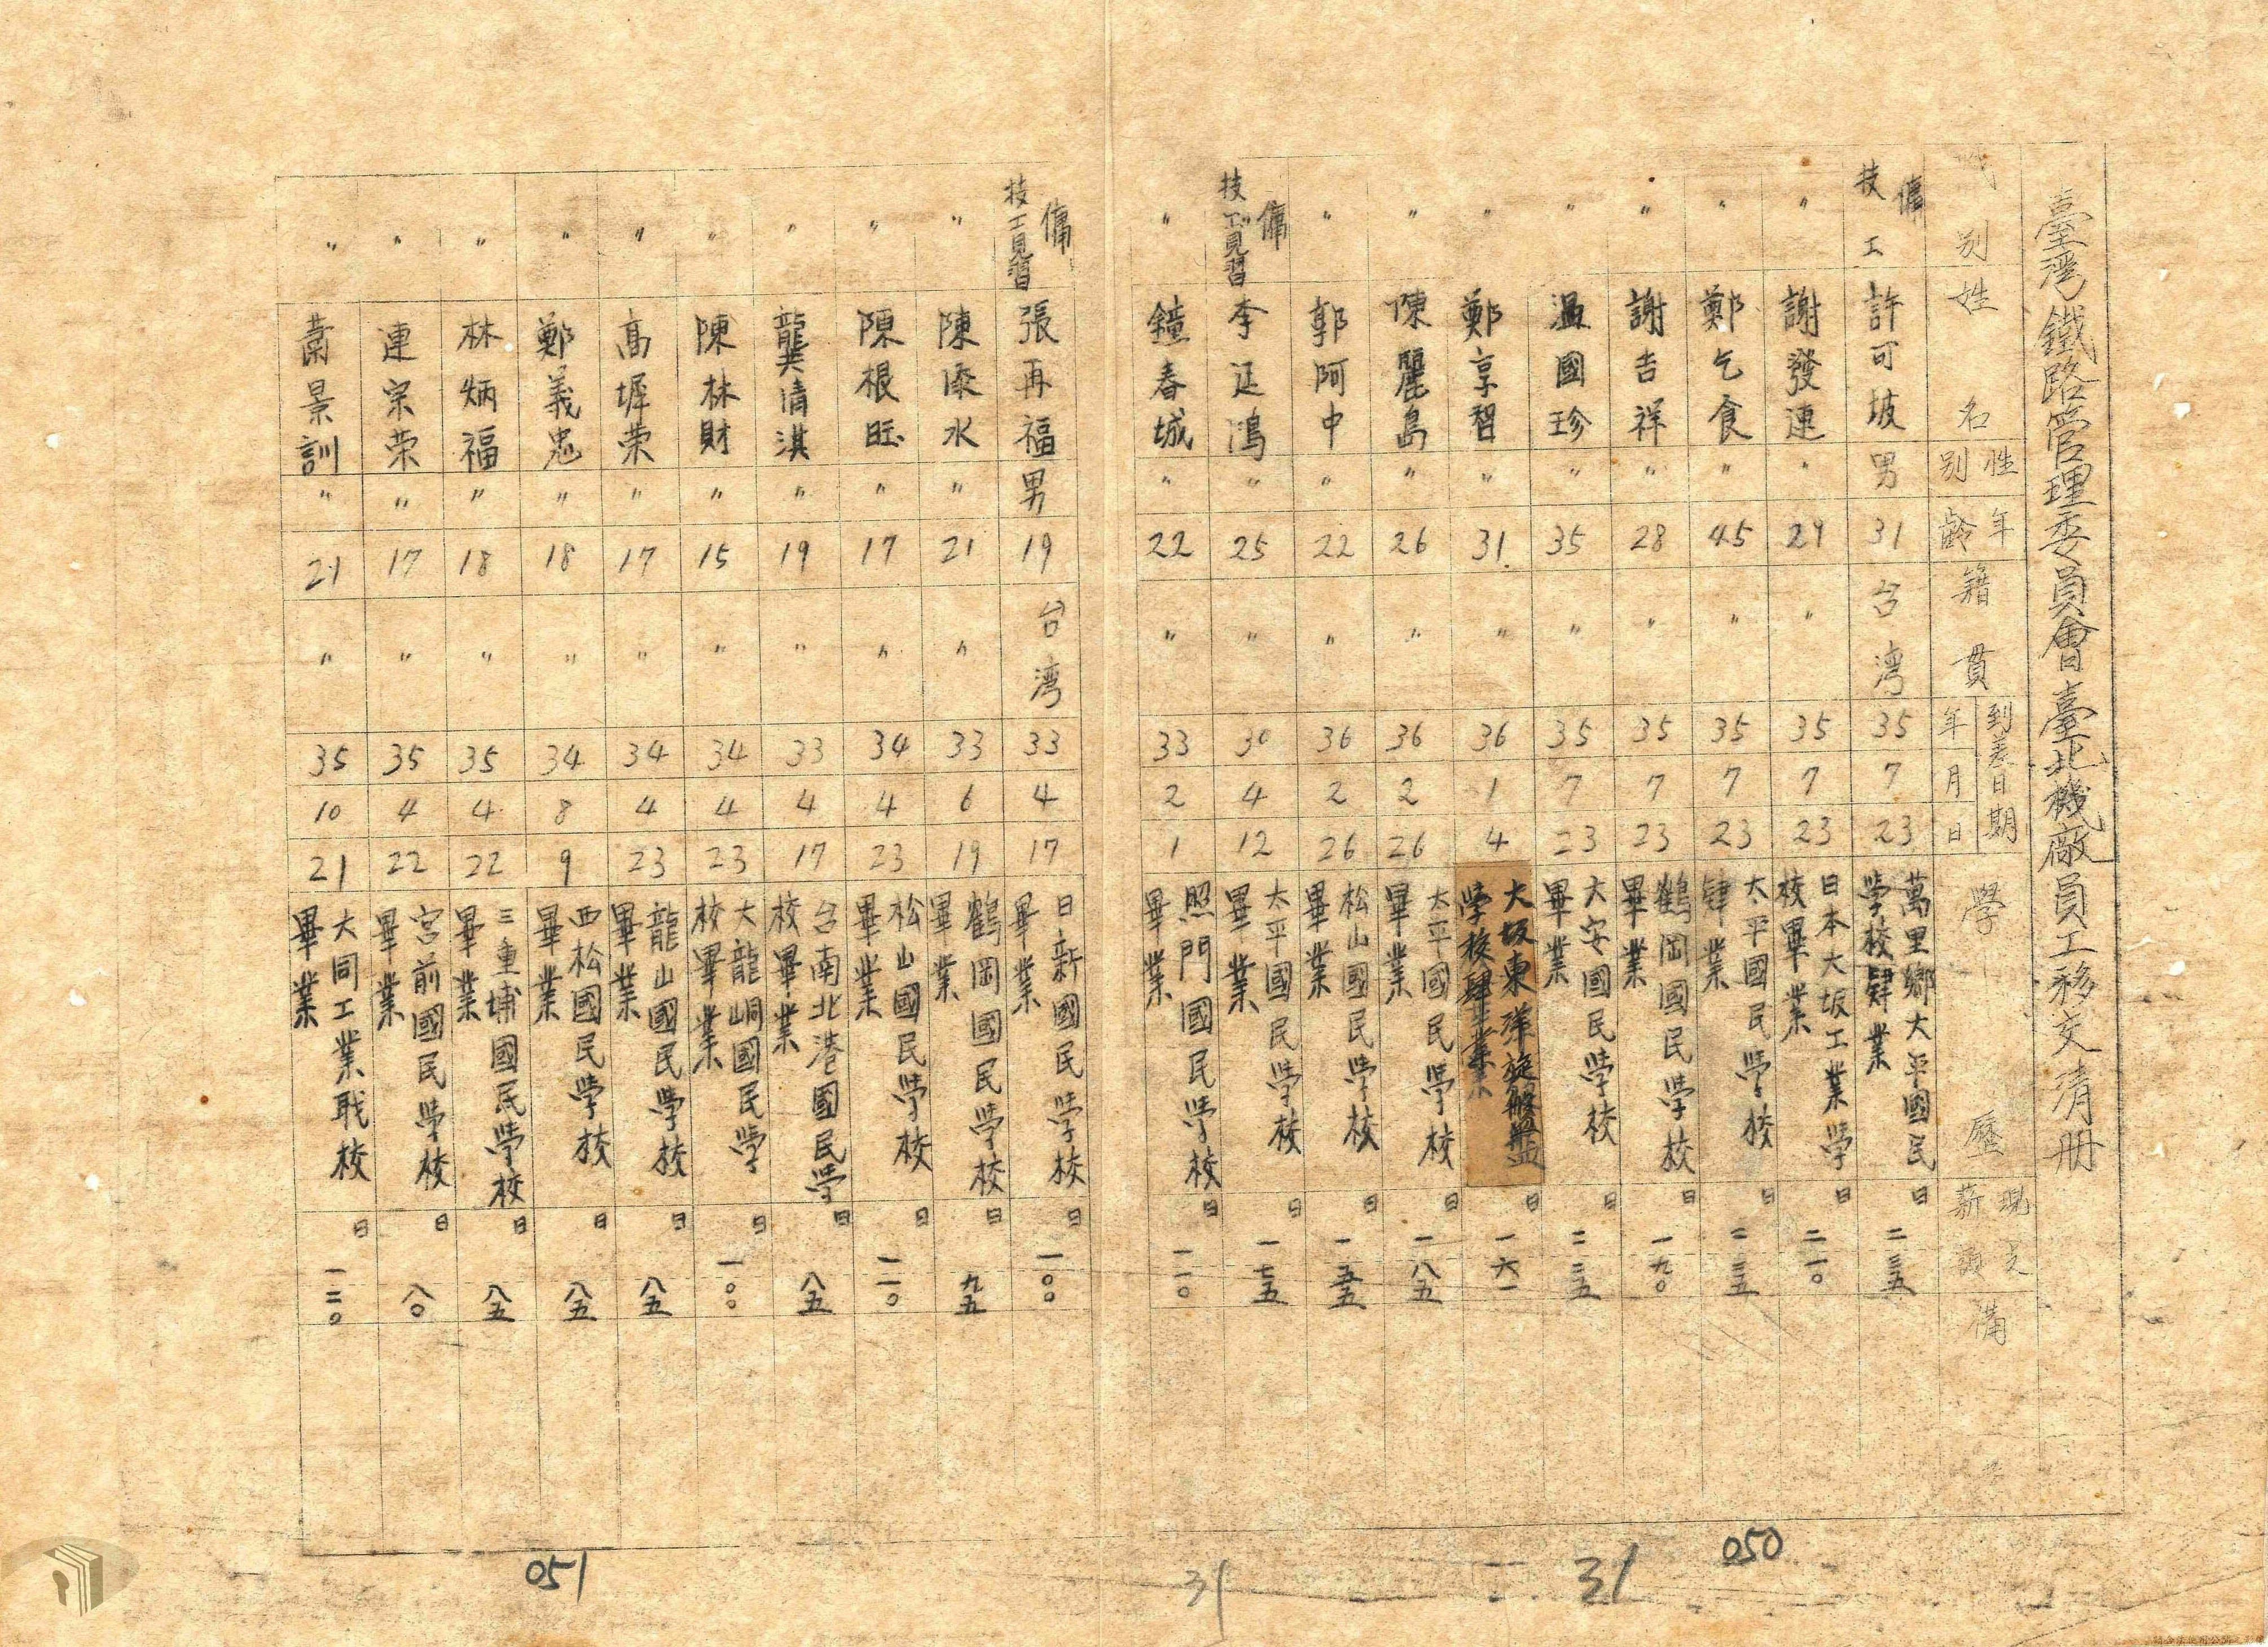 臺灣鐵路管理委員會臺北機廠員工移交清冊
別 姓名 性別 年齡 籍貫 到差日期 年 月 日 學歷 現支薪 備
傭技工 許可坡 男 31 台湾 35 7 23 萬里鄉大平國民学校肄業 日二三五
〃 謝發連 〃 29 〃 35 7 23 日本大坂工業学校畢業 日二一〇
〃 鄭乞食 〃 45 〃 35 7 23 太平國民学校肄業 日二三五
〃 謝吉祥 〃 28 〃 35 7 23 鶴岡國民学校畢業 日一九〇
〃 溫國珍 〃 35 〃 35 7 23 大安國民学校畢業 日二三五
〃 鄭享智 〃 31 〃 36 1 4 大坂東洋旋盤学校肄業 日一六一
〃 陳麗島 〃 26 〃 36 2 26 太平國民学校畢業 日一八五
〃 郭阿中 〃 22 〃 36 2 26 松山國民学校畢業 日一五五
傭技工見習 李廷鴻 〃 25 〃 30 4 12 太平國民学校畢業 日一七五
〃 鐘春城 〃 22 〃 33 2 1 照門國民学校畢業 日一一〇
050
31
31
傭技工見習 張再福 男 19 台湾 33 4 17 日新國民学校畢業 日一〇〇
〃 陳添水 〃 21 〃 33 6 19 鶴岡國民学校畢業 日九五
〃 陳根旺 〃 17 〃 34 4 23 松山國民学校畢業 日一一〇
〃 龔清淇 〃 19 〃 33 4 17 台南北港國民学校畢業 日八五
〃 陳林財 〃 15 〃 34 4 23 大龍峒國民学校畢業 日一〇〇
〃 高墀荣 〃 17 〃 34 4 23 龍山國民学校畢業 日八五
〃 鄭義忠 〃 18 〃 34 8 9 西松國民学校畢業 日八五
〃 林炳福 〃 18 〃 35 4 22 三重埔國民学校畢業 日八五
〃 連宗荣 〃 17 〃 35 4 22 宮前國民学校畢業 日八〇
〃 萧景訓 〃 21 〃 35 10 21 大同工業職校畢業 日一二〇
051